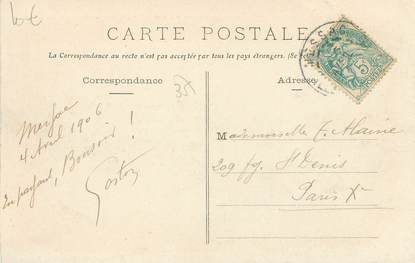 10€
CARTE POSTALE
La Correspondance au recto n'est pas acceptée par tous les pays étrangers. (Se
Correspondance
Adresse
35
4 Avril 1906
En passant, Bonsoir !
Gaston
5
Mademoiselle Alaine
209 fg. St Denis
Paris Xe